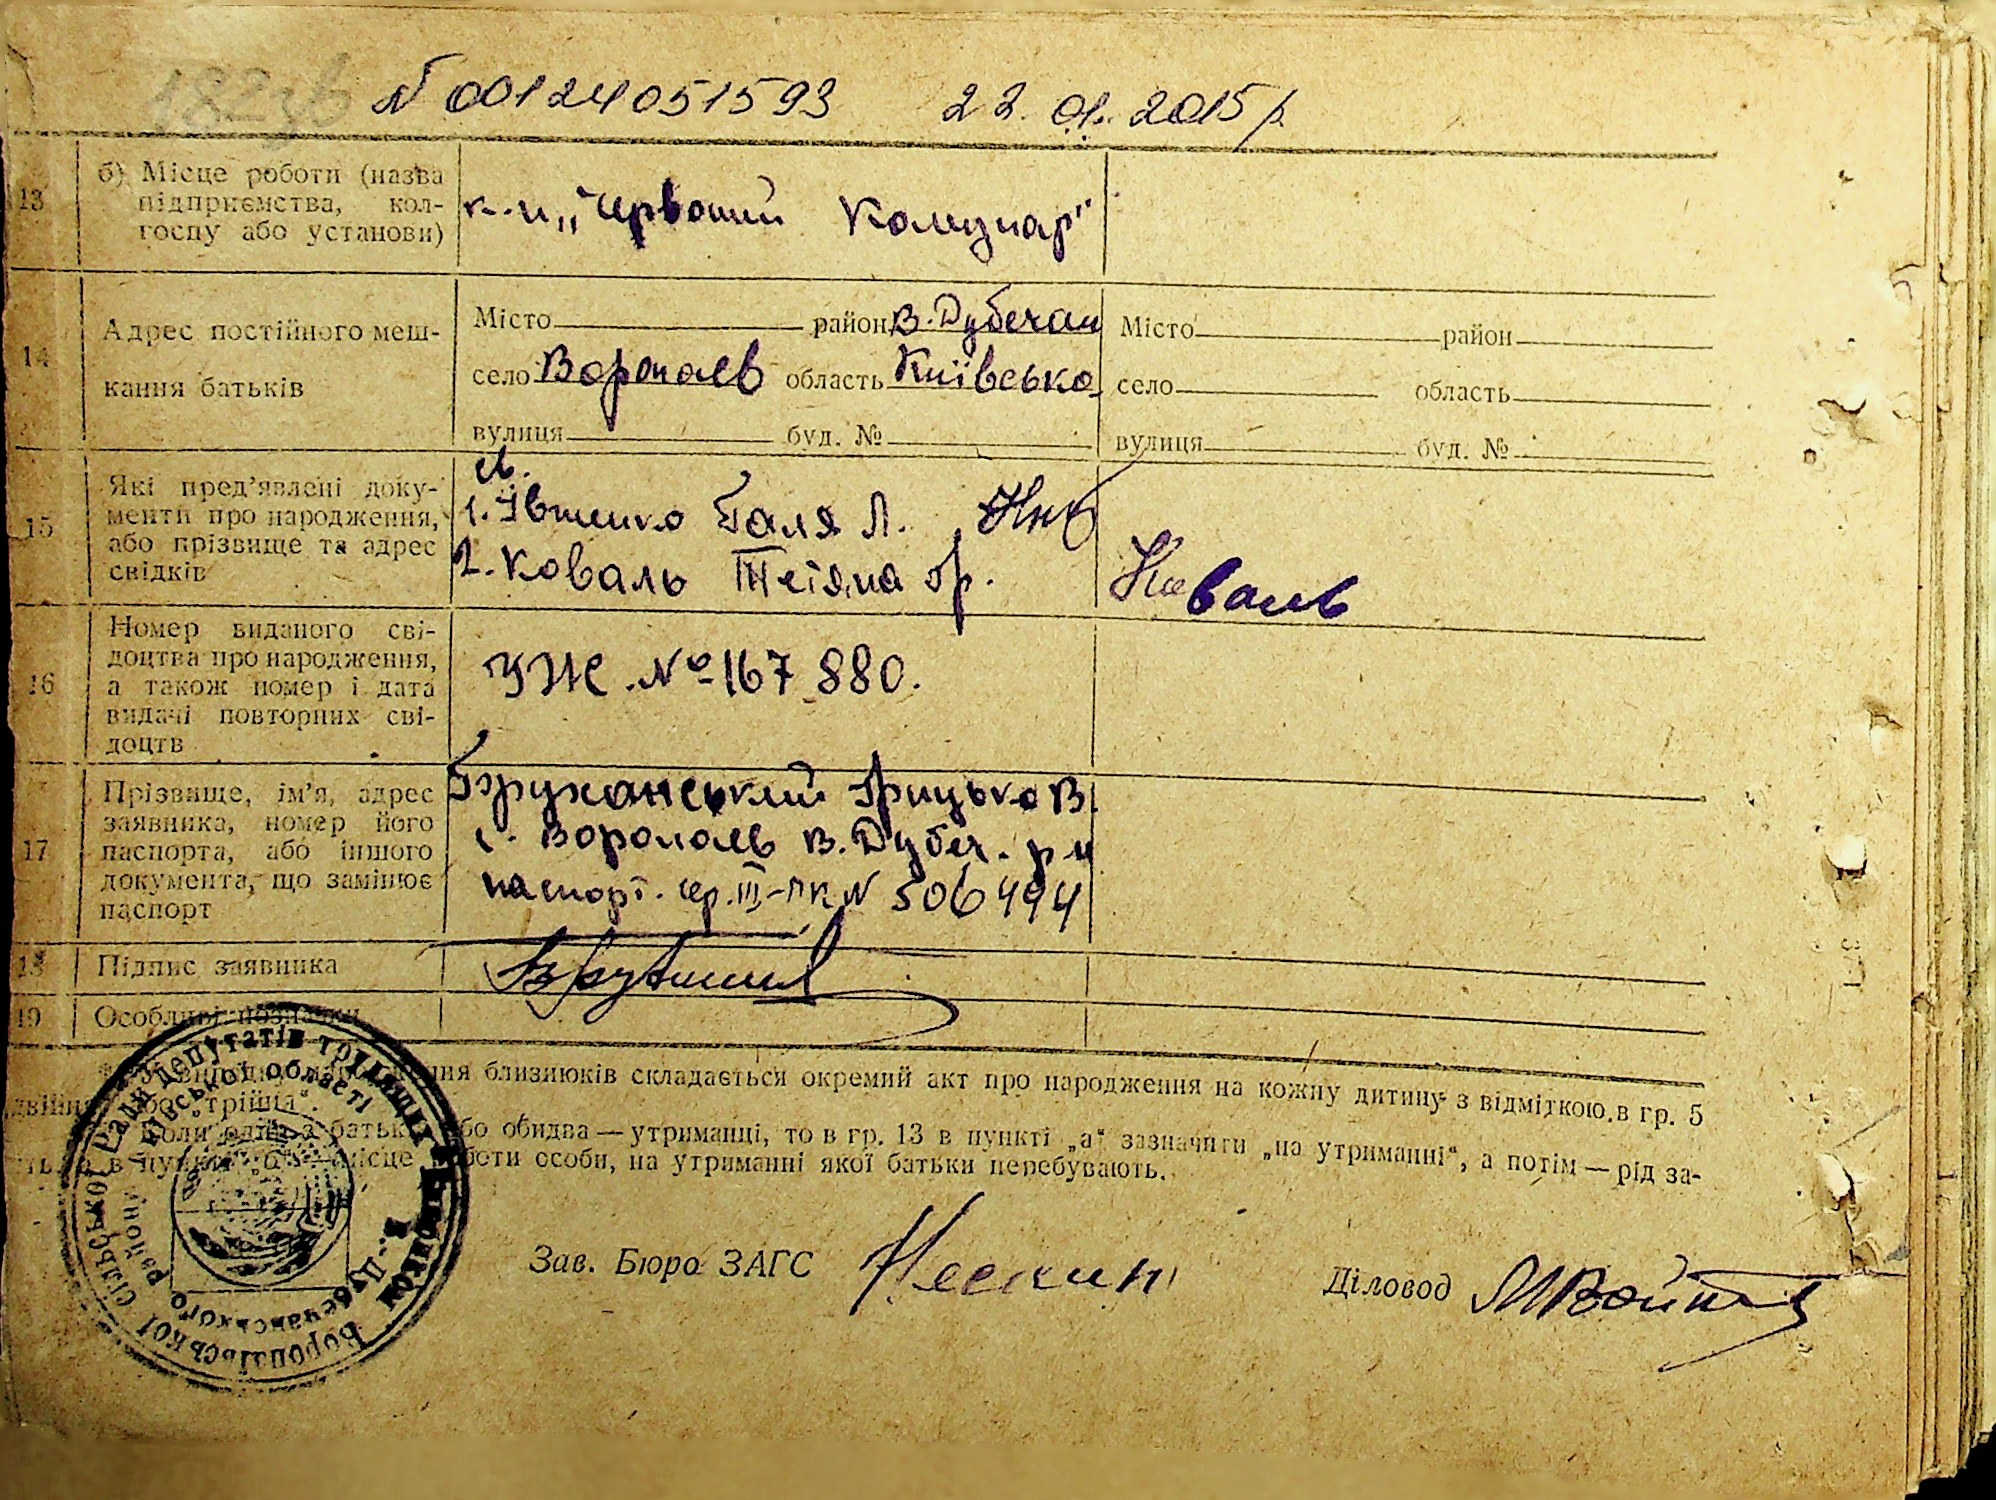 № 00124051593 22.01.2015 р.
13 б) Місце роботи (назва підприємства, колгоспу або установи)
к-п „Червоний Комунар"
14 Адрес постійного мешкання батьків
Місто район В. Дубечан
село Воропаєв область Київська
вулиця буд. №
Місто район
село область
вулиця буд. №
15 Які пред'явлені документи про народження, або прізвище та адрес свідків
1. Івженко Галя Л.
2. Коваль Тетяна Гр. Коваль
16 Номер виданого свідоцтва про народження, а також номер і дата видачі повторних свідоцтв
УЖ № 167880.
17 Прізвище, ім'я, адрес заявника, номер його паспорта, або іншого документа, що замінює паспорт
Гружанський Грицько В.
с. Воропаєв В. Дубеч. р-н
паспорт. сер. III-ПК № 506494
18 Підпис заявника
19 Особливі позначки
народження близнюків складається окремий акт про народження на кожну дитину з відміткою в гр. 5
або „трійня".
Коли один з батьків або обидва — утриманці, то в гр. 13 в пункті „а" зазначити „на утриманні", а потім — рід за-
в пункті „б" — місце роботи особи, на утриманні якої батьки перебувають.
Воропаївської сільської Ради депутатів трудящих
В.-Дубечанського району Київської області
Виконком
Зав. Бюро ЗАГС
Діловод